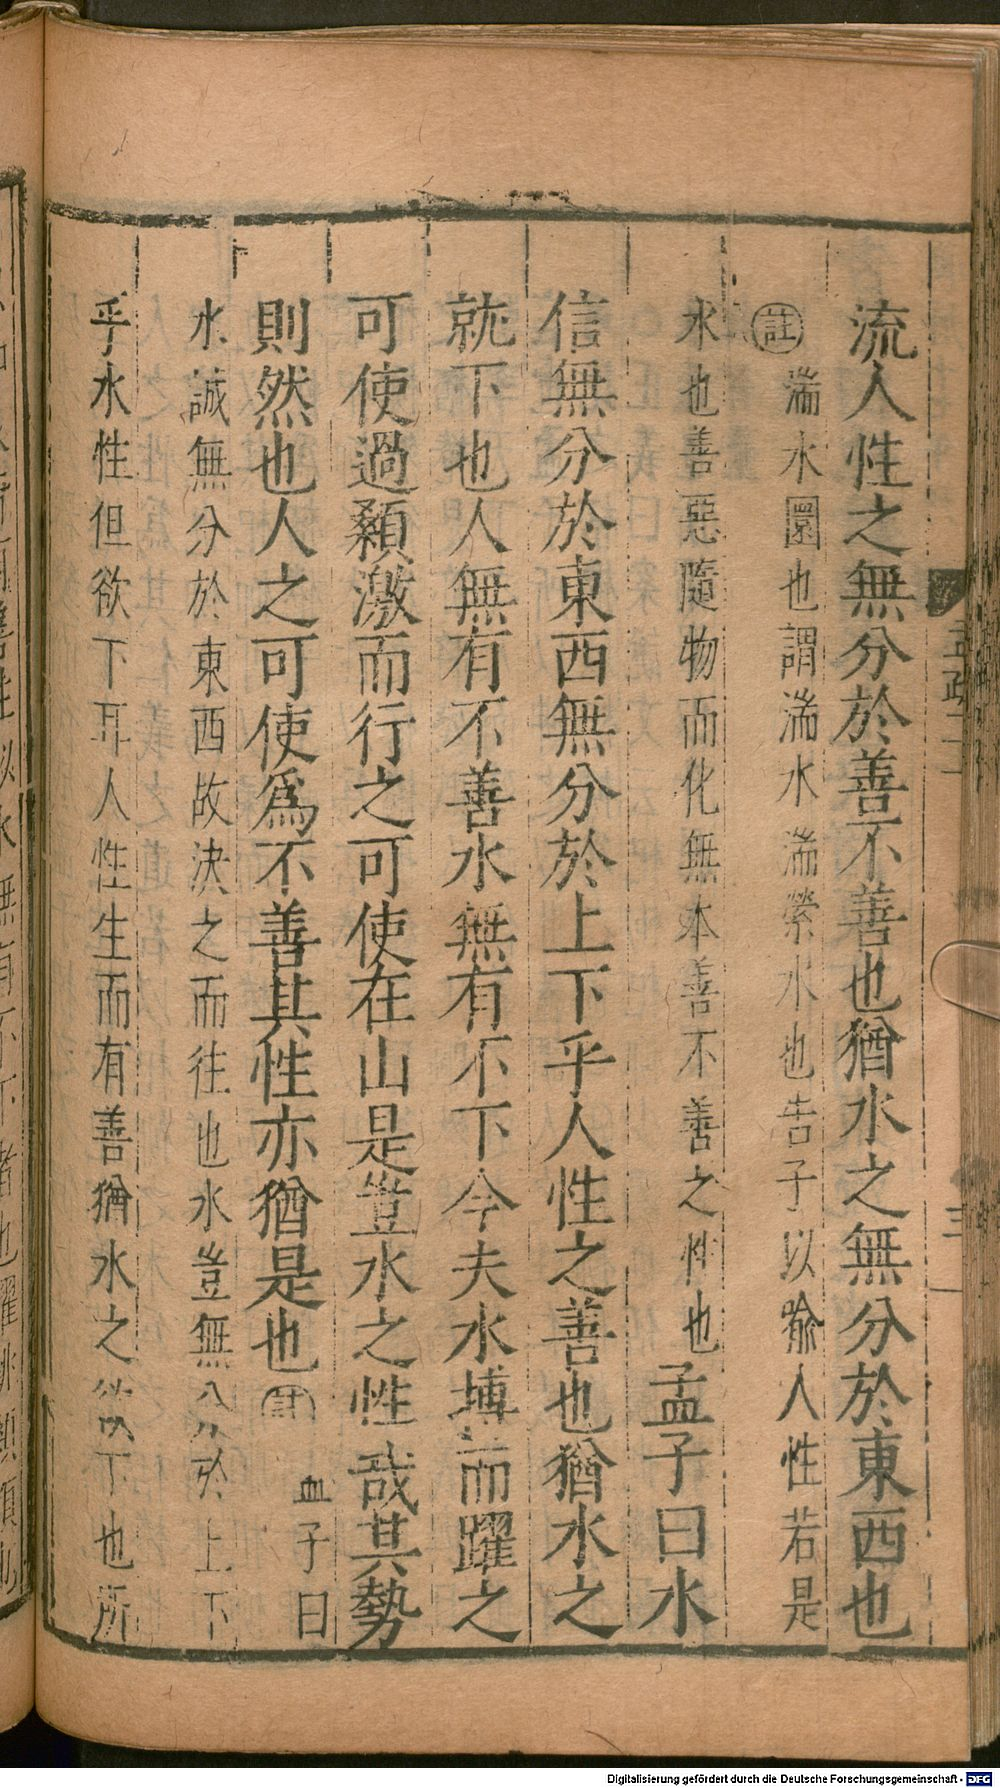 流人性之無分於善不善也猶水之無分於東西也
註湍水圜也謂湍水湍縈水也告子以喻人性若是
水也善惡隨物而化無本善不善之性也孟子曰水
信無分於東西無分於上下乎人性之善也猶水之
就下也人無有不善水無有不下今夫水搏而躍之
可使過顙激而行之可使在山是豈水之性哉其勢
則然也人之可使爲不善其性亦猶是也註孟子曰
水誠無分於東西故決之而往也水豈無分於上下
乎水性但欲下耳人性生而有善猶水之欲下也所
Digitalisierung gefördert durch die Deutsche Forschungsgemeinschaft - DFG